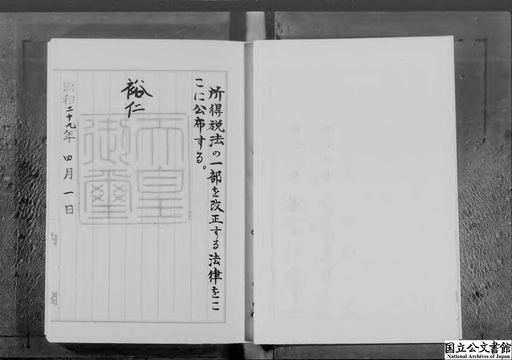 所得税法の一部を改正する法律をこ
こに公布する。
裕仁
天皇
御璽
昭和二十九年 四月 一日
国立公文書館
National Archives of Japan